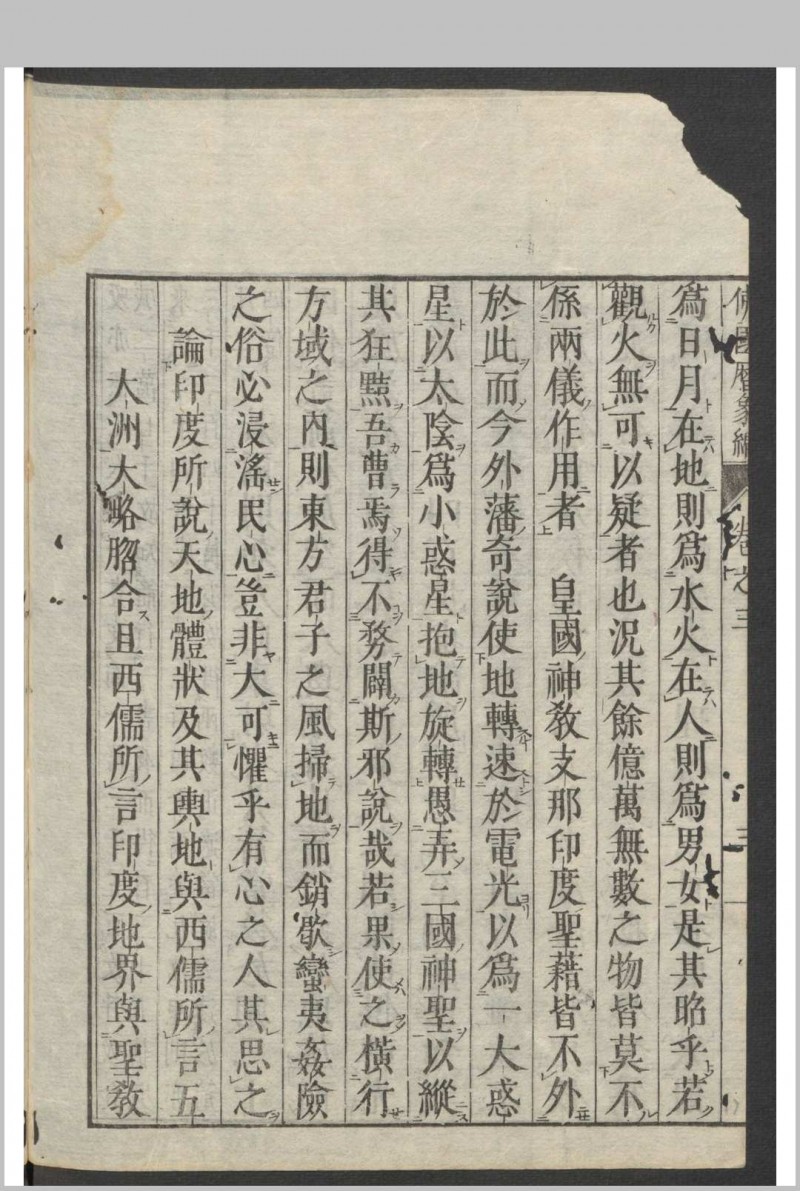 佛國曆象編 卷之三 三
爲日月在地則爲水火在人則爲男女是其昭乎若
觀火無可以疑者也況其餘億萬無數之物皆莫不
係兩儀作用者　皇國神教支那印度聖藉皆不外
於此而今外藩奇說使地轉速於電光以爲一大惑
星以太陰爲小惑星抱地旋轉愚弄三國神聖以縱
其狂黠吾曹焉得不務闢斯邪說哉若果使之橫行
方域之內則東方君子之風掃地而銷歇蠻夷姦險
之俗必浸滛民心豈非大可懼乎有心之人其思之
論印度所說天地體狀及其輿地與西儒所言五
大洲大略脗合且西儒所言印度地界與聖教